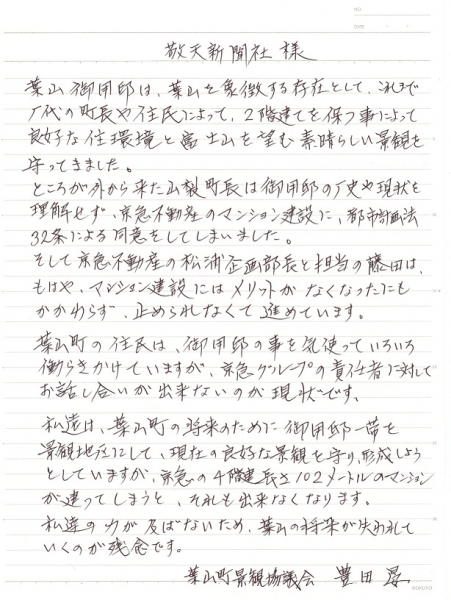 敬天新聞社 様
葉山御用邸は、葉山を象徴する存在として、これまで
歴代の町長や住民によって、2階建てを保つ事によって
良好な住環境と富士山を望む素晴らしい景観を
守ってきました。
ところが外から来た山梨町長は御用邸の歴史や現状を
理解せず、京急不動産のマンション建設に、都市計画法
32条による同意をしてしまいました。
そして京急不動産の松浦企画部長と担当の藤田は、
もはや、マンション建設にはメリットがなくなったにも
かかわらず、止められなくて進めています。
葉山町の住民は、御用邸の事を気使っていろいろ
働らきかけていますが、京急グループの責任者に対して
お話し合いが出来ないのが現状です。
私達は、葉山町の将来のために御用邸一帯を
景観地区にして、現在の良好な景観を守り、形成しよう
としていますが、京急の4階建長さ102メートルのマンション
が建ってしまうと、それも出来なくなります。
私達の力が及ばないため、葉山の将来が失われて
いくのが残念です。
葉山町景観協議会 豊田
NO.
DATE
KOKUYO